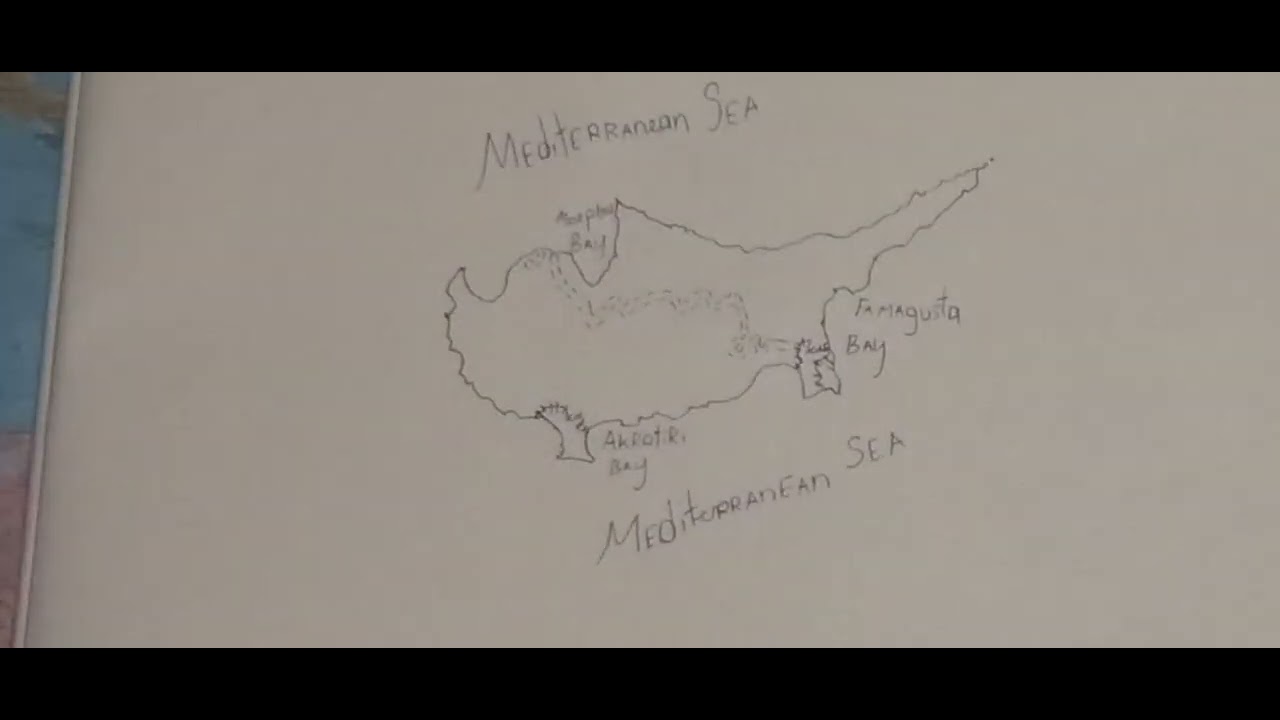 Mediterranean Sea
Bay
Famagusta
Bay
Akrotiri
Bay
Mediterranean Sea